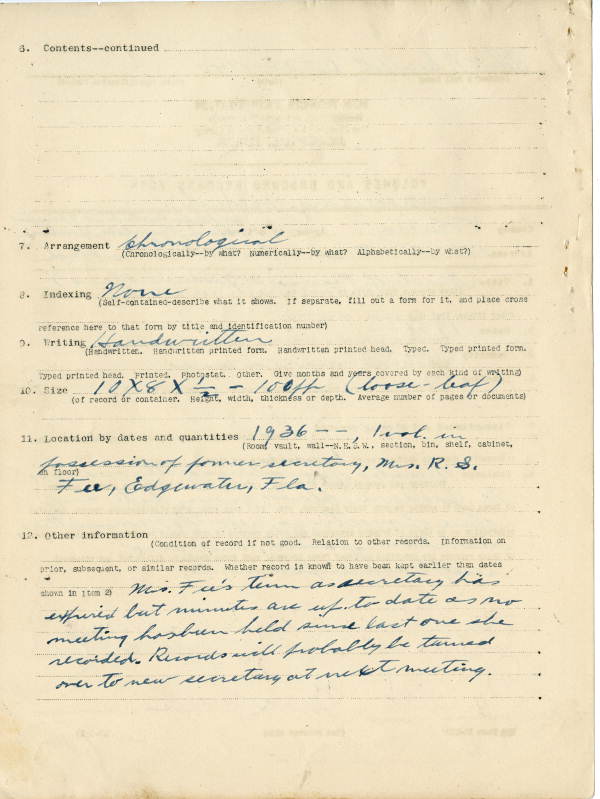 6. Contents--continued
7. Arrangement Chronological
(Chronologically--by what? Numerically--by what? Alphabetically--by what?)
8. Indexing None
(Self-contained-describe what it shows. If separate, fill out a form for it, and place cross
reference here to that form by title and identification number)
9. Writing Handwritten
(Handwritten. Handwritten printed form. Handwritten printed head. Typed. Typed printed form.
Typed printed head. Printed. Photostat. Other. Give months and years covered by each kind of writing)
10. Size 10 X 8 X 1/2 - 100pp (loose-leaf)
(of record or container. Height, width, thickness or depth. Average number of pages or documents)
11. Location by dates and quantities 1936 --, 1 vol. in
(Room, vault, wall--N.E.S.W., section, bin, shelf, cabinet,
possession of former secretary, Mrs. R. S.
on floor)
Fee, Edgewater, Fla.
12. Other information
(Condition of record if not good. Relation to other records. Information on
prior, subsequent, or similar records. Whether record is known to have been kept earlier than dates
shown in item 2) Mrs. Fee's term as secretary has
expired but minutes are up to date as no
meeting has been held since last one she
recorded. Records will probably be turned
over to new secretary at next meeting.